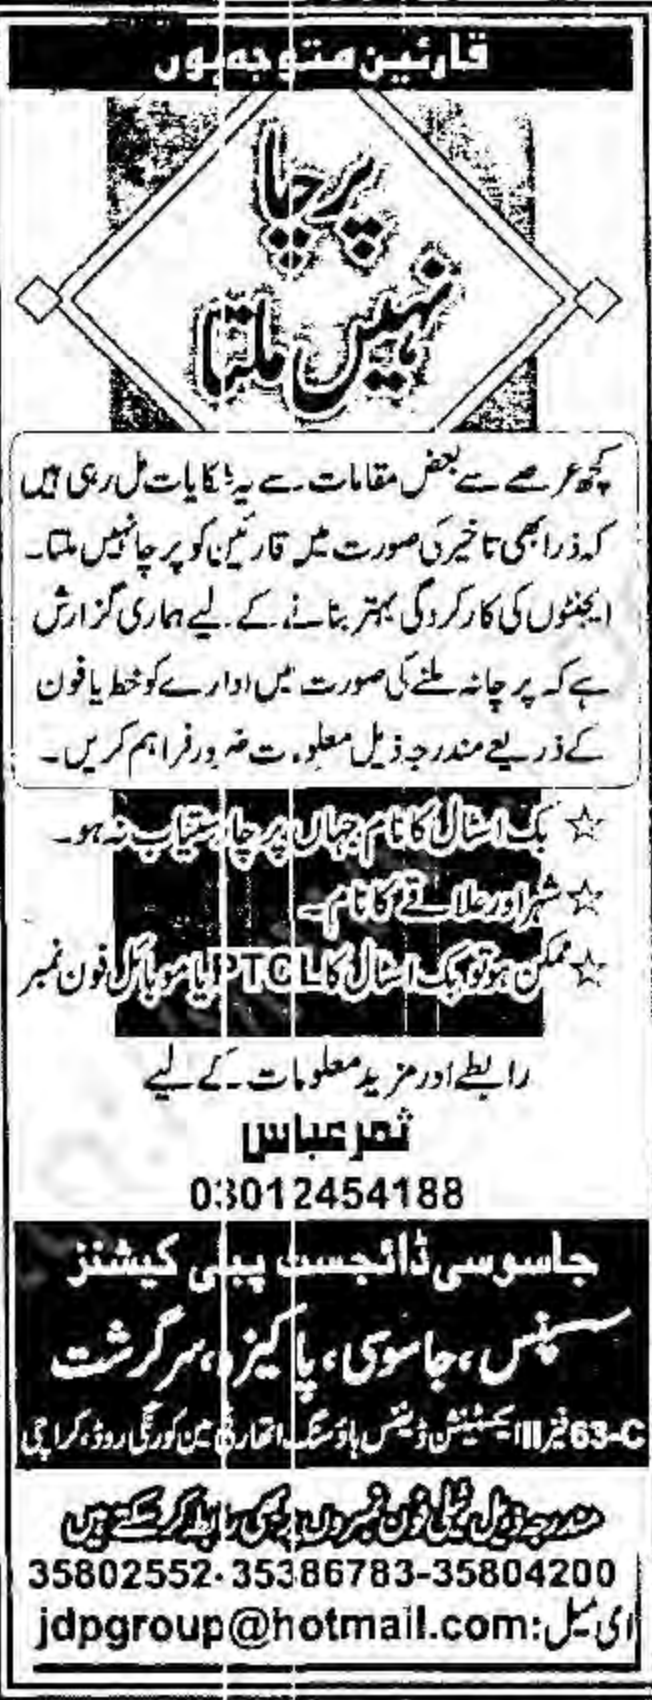 قارئین متوجہ ہوں
پرچا
نہیں ملتا
کچھ عرصے سے بعض مقامات سے یہ شکایات مل رہی ہیں
کہ ذرا بھی تاخیر کی صورت میں قارئین کو پرچا نہیں ملتا۔
ایجنٹوں کی کارکردگی بہتر بنانے کے لیے ہماری گزارش
ہے کہ پرچا نہ ملنے کی صورت میں ادارے کو خط یا فون
کے ذریعے مندرجہ ذیل معلومات ضرور فراہم کریں۔
☆ بک اسٹال کا نام جہاں پرچا دستیاب نہ ہو۔
☆ شہر اور علاقے کا نام۔
☆ ممکن ہو تو بک اسٹال کا PTCL یا موبائل فون نمبر
رابطے اور مزید معلومات کے لیے
ثمر عباس
03012454188
جاسوسی ڈائجسٹ پبلی کیشنز
سسپنس، جاسوسی، پاکیزہ، سرگزشت
63-C فیز III ایکسٹینشن ڈیفنس ہاؤسنگ اتھارٹی مین کورنگی روڈ، کراچی
مندرجہ ذیل ٹیلی فون نمبروں پر بھی رابطہ کر سکتے ہیں
35802552-35386783-35804200
ای میل:jdpgroup@hotmail.com